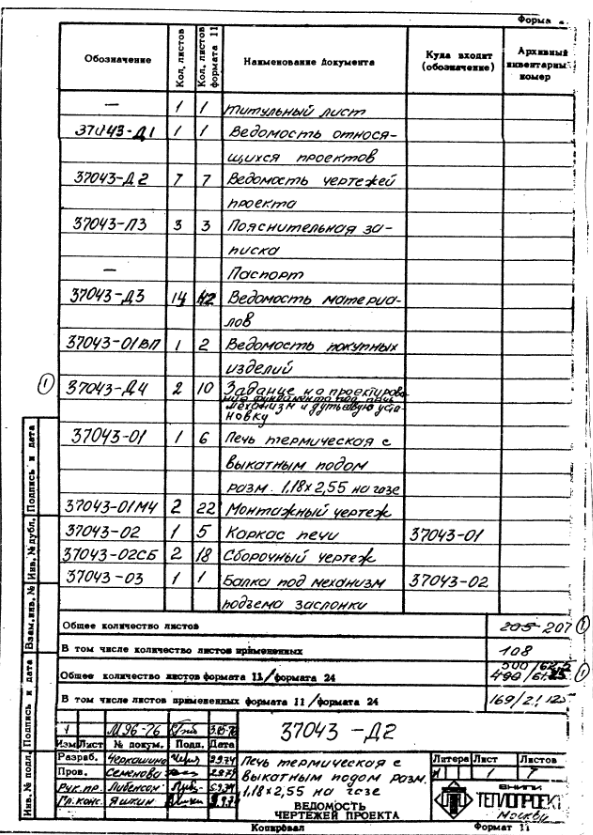 Форма
Обозначение | Кол. листов | Кол. листов формата 11 | Наименование документа | Куда входит (обозначение) | Архивный инвентарный номер
— | 1 | 1 | Титульный лист
37043-Д1 | 1 | 1 | Ведомость относя-
щихся проектов
37043-Д2 | 7 | 7 | Ведомость чертежей
проекта
37043-ПЗ | 3 | 3 | Пояснительная за-
писка
— | Паспорт
37043-Д3 | 14 | 42 | Ведомость материа-
лов
37043-01ВП | 1 | 2 | Ведомость покупных
изделий
① 37043-Д4 | 2 | 10 | Задание на проектирова
ние фундамента под печь
механизм и дутьевую уста-
новку
37043-01 | 1 | 6 | Печь термическая с
выкатным подом
разм. 1,18х2,55 на газе
37043-01МЧ | 2 | 22 | Монтажный чертеж
37043-02 | 1 | 5 | Каркас печи | 37043-01
37043-02СБ | 2 | 18 | Сборочный чертеж
37043-03 | 1 | 1 | Балка под механизм | 37043-02
подъема заслонки
Общее количество листов | 205 207 ①
В том числе количество листов применённых | 108
500/62,5
Общее количество листов формата 11/формата 24 | 490/61.25 ①
В том числе листов применённых формата 11/формата 24 | 169/21.125
1 | М 96-76
Изм | Лист | № докум. | Подп. | Дата
37043-Д2
Разраб. Черкашина
Пров. Семенова
Рук. пр. Либенсон
Гл. конс. Яшкин
Печь термическая с
выкатным подом разм.
1,18х2,55 на газе
ВЕДОМОСТЬ
ЧЕРТЕЖЕЙ ПРОЕКТА
Литера | Лист | Листов
И | 1 | 7
ВНИПИ
ТЕПЛОПРОЕКТ
Москва
Инв. № подл. | Подпись и дата | Взам. инв. № | Инв. № дубл. | Подпись и дата
Копировал
Формат 11